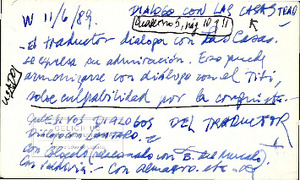 W 11/6/89. DIALOGO CON LAS CASAS
(Cuaderno 5, pág 10 y 11)
- el traductor dialoga con Las Casas.
se expresa su admiración. Eso puede
armonizarse con diálogo con el Titi,
sobre culpabilidad por la conquista.-
NUEVOS DIALOGOS DEL TRADUCTOR
Dialogo con
Con (relacionado con B. del Mundo)
Con - Con Almagro. etc -